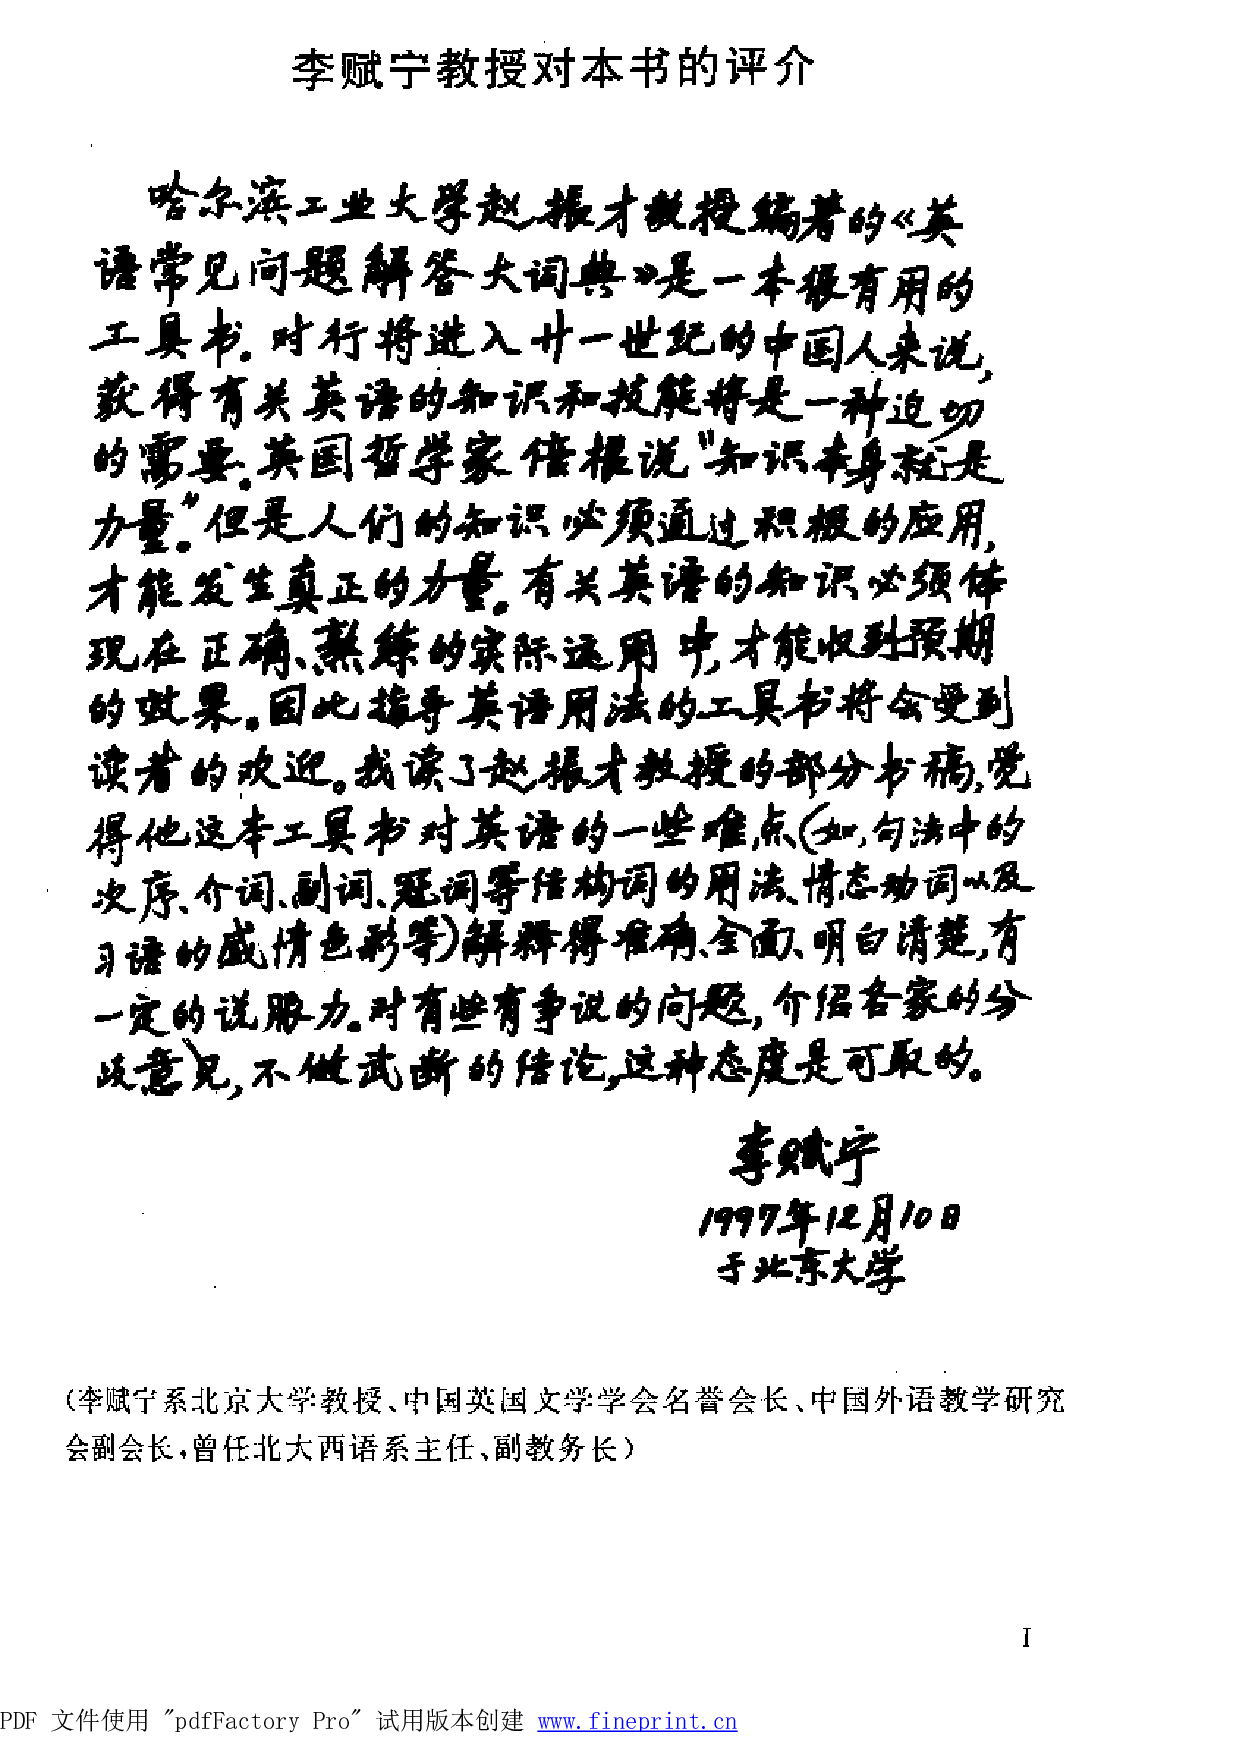 李赋宁教授对本书的评介
哈尔滨工业大学赵振才教授编著的《英
语常见问题解答大词典》是一本很有用的
工具书。对行将进入廿一世纪的中国人来说,
获得有关英语的知识和技能将是一种迫切
的需要。英国哲学家倍根说“知识本身就是
力量”。但是人们的知识必须通过积极的应用,
才能发生真正的力量。有关英语的知识必须体
现在正确、熟练的实际运用中,才能收到预期
的效果。因此指导英语用法的工具书将会受到
读者的欢迎。我读了赵振才教授的部分书稿,觉
得他这本工具书对英语的一些难点(如,句法中的
次序、介词、副词、冠词等结构词的用法、情态动词以及
习语的感情色彩等)解释得准确、全面、明白清楚,有
一定的说服力。对有些有争议的问题,介绍各家的分
歧意见,不做武断的结论,这种态度是可取的。
李赋宁
1997年12月10日
于北京大学
(李赋宁系北京大学教授、中国英国文学学会名誉会长、中国外语教学研究
会副会长,曾任北大西语系主任、副教务长)
I
PDF 文件使用 "pdfFactory Pro" 试用版本创建 www.fineprint.cn